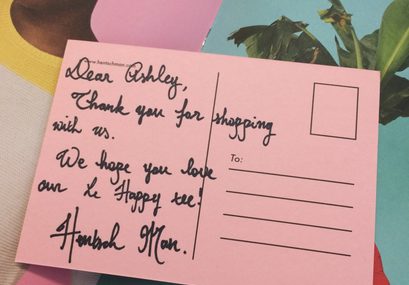 www.hentschman.com
Dear Ashley,
Thank you for shopping
with us.
We hope you love
our Le Happy tee!
Hentsch Man.
To: